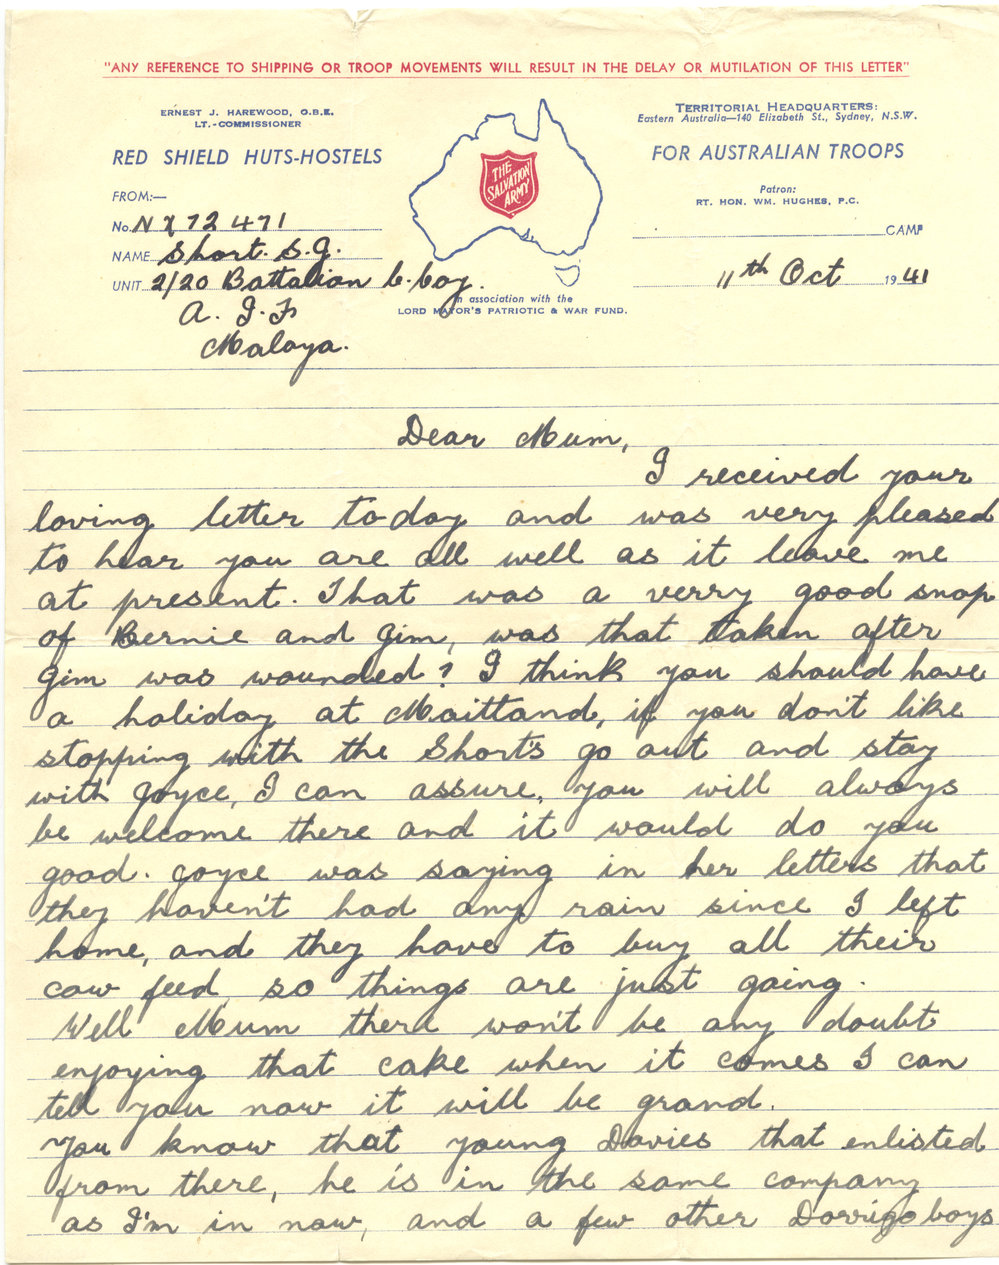 "ANY REFERENCE TO SHIPPING OR TROOP MOVEMENTS WILL RESULT IN THE DELAY OR MUTILATION OF THIS LETTER"
ERNEST J. HAREWOOD, O.B.E.
LT.-COMMISSIONER
RED SHIELD HUTS-HOSTELS
FROM:—
No. NX 72471
NAME Short. S.J.
UNIT 2/20 Battalion C. Coy.
A. I. F.
Malaya.
THE
SALVATION
ARMY
In association with the
LORD MAYOR'S PATRIOTIC & WAR FUND.
TERRITORIAL HEADQUARTERS:
Eastern Australia—140 Elizabeth St., Sydney, N.S.W.
FOR AUSTRALIAN TROOPS
Patron:
RT. HON. WM. HUGHES, P.C.
CAMP
11th Oct 1941
Dear Mum,
I received your
loving letter today and was very pleased
to hear you are all well as it leave me
at present. That was a verry good snap
of Bernie and Jim, was that taken after
Jim was wounded? I think you should have
a holiday at Maittand, if you don't like
stopping with the Short's go out and stay
with Joyce, I can assure, you will always
be welcome there and it would do you
good. Joyce was saying in her letters that
they haven't had any rain since I left
home, and they have to buy all their
cow feed, so things are just going.
Well Mum there won't be any doubt
enjoying that cake when it comes I can
tell you now it will be grand.
You know that young Davies that enlisted
from there, he is in the same company
as I'm in now, and a few other Dorrigo boys